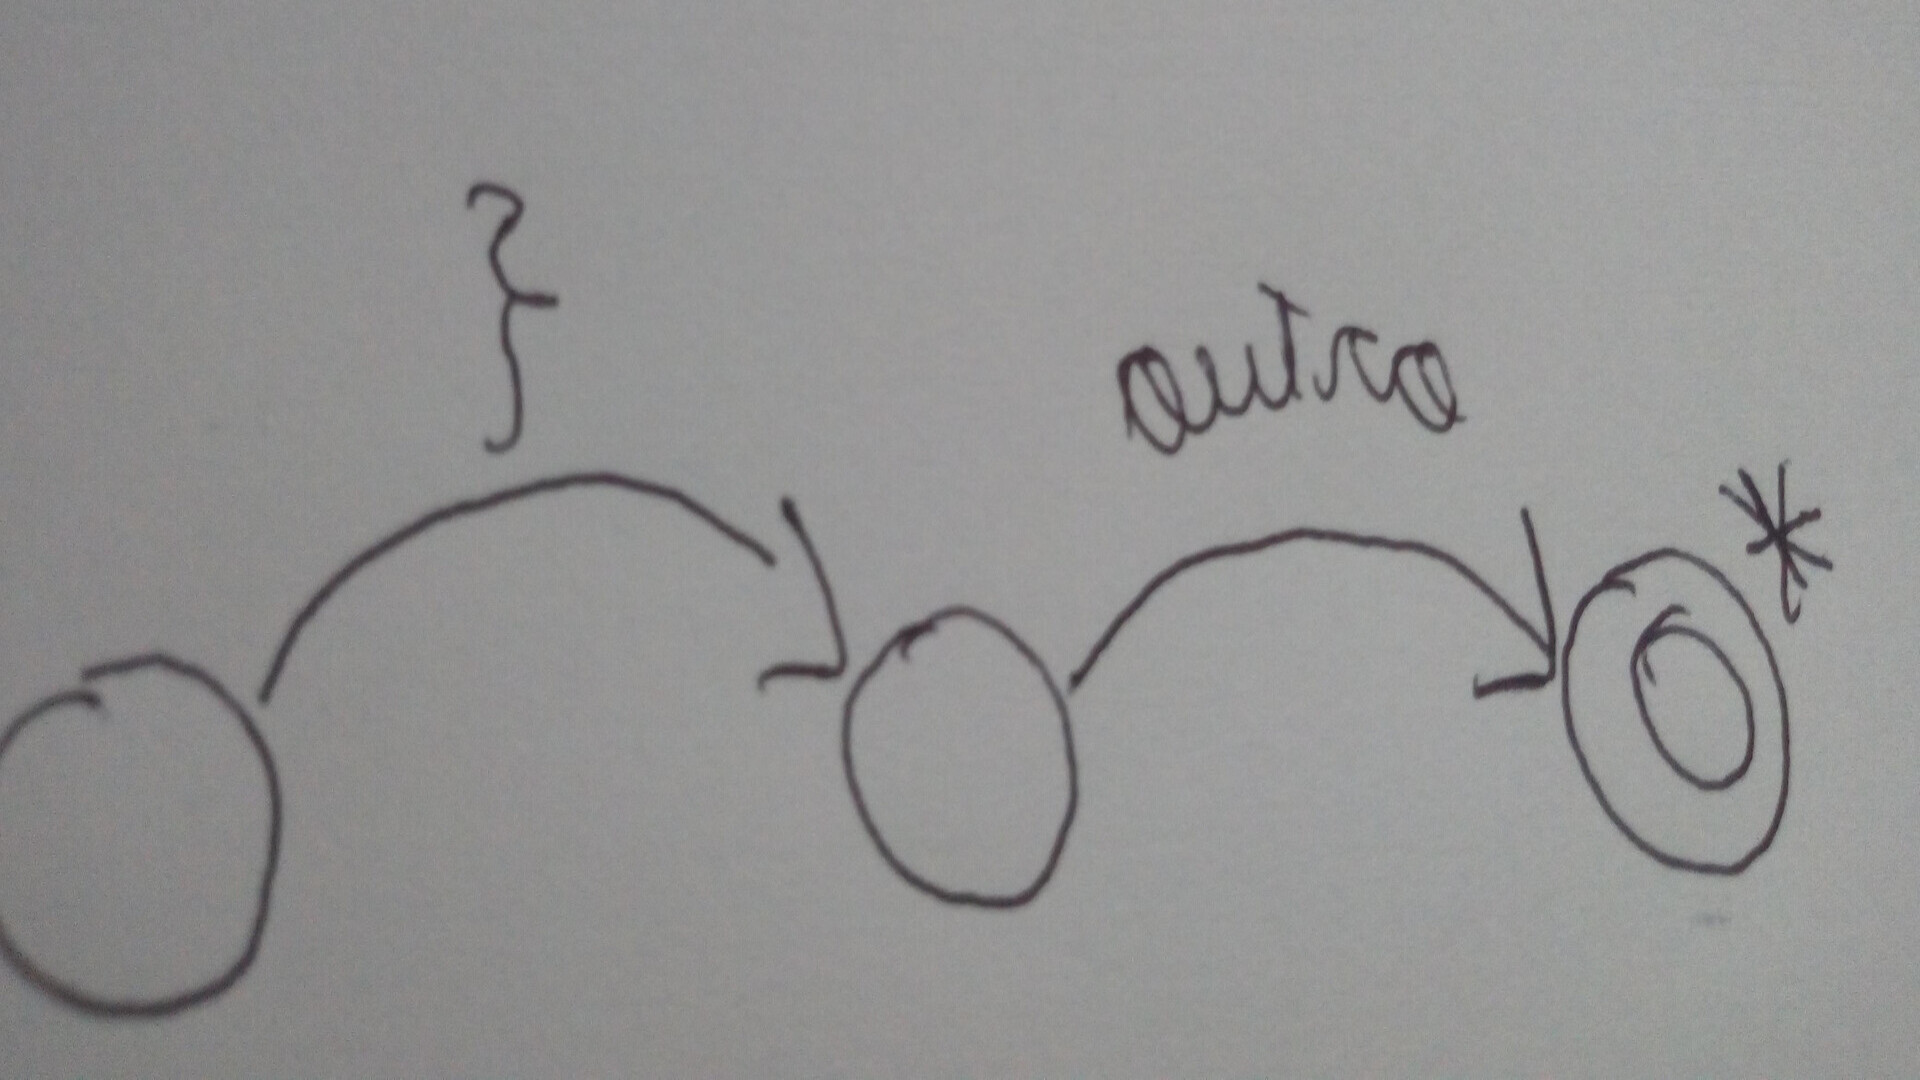 }
outro
*